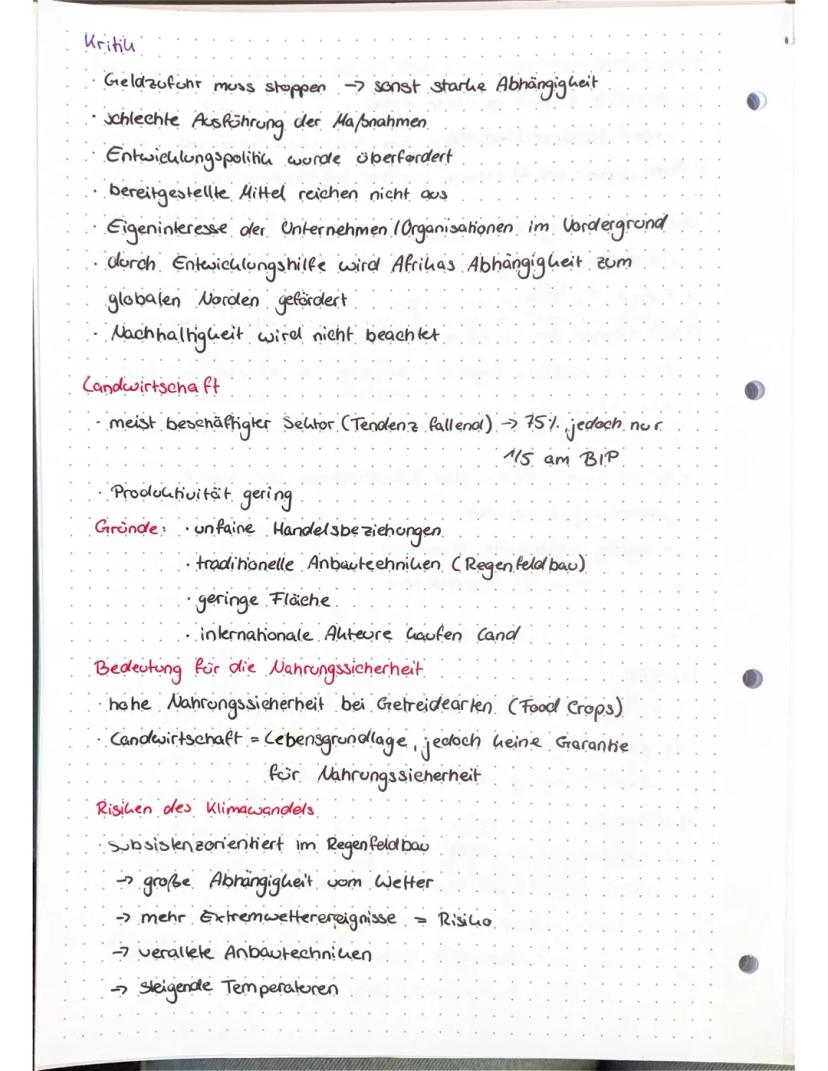 Kritik
· Geldzufuhr muss stoppen → sonst starke Abhängigkeit
· schlechte Ausführung der Maßnahmen
· Entwicklungspolitik wurde überfordert
· bereitgestellte Mittel reichen nicht aus
· Eigeninteresse der Unternehmen / Organisationen im Vordergrund
· durch Entwicklungshilfe wird Afrikas Abhängigkeit zum
globalen Norden gefördert
· Nachhaltigkeit wird nicht beachtet
Landwirtschaft
· meist beschäftigter Sektor (Tendenz fallend) → 75%, jedoch nur
1/5 am BIP
· Produktivität gering
Gründe: · unfaine Handelsbeziehungen
· traditionelle Anbautechniken (Regenfeldbau)
· geringe Fläche
· internationale Akteure kaufen Land
Bedeutung für die Nahrungssicherheit
· hohe Nahrungssicherheit bei Getreidearten (Food Crops)
· Landwirtschaft = Lebensgrundlage, jedoch keine Garantie
für Nahrungssicherheit
Risiken des Klimawandels
· subsistenzorientiert im Regenfeldbau
→ große Abhängigkeit vom Wetter
→ mehr Extremwetterereignisse = Risiko
→ verallete Anbautechniken
→ steigende Temperaturen